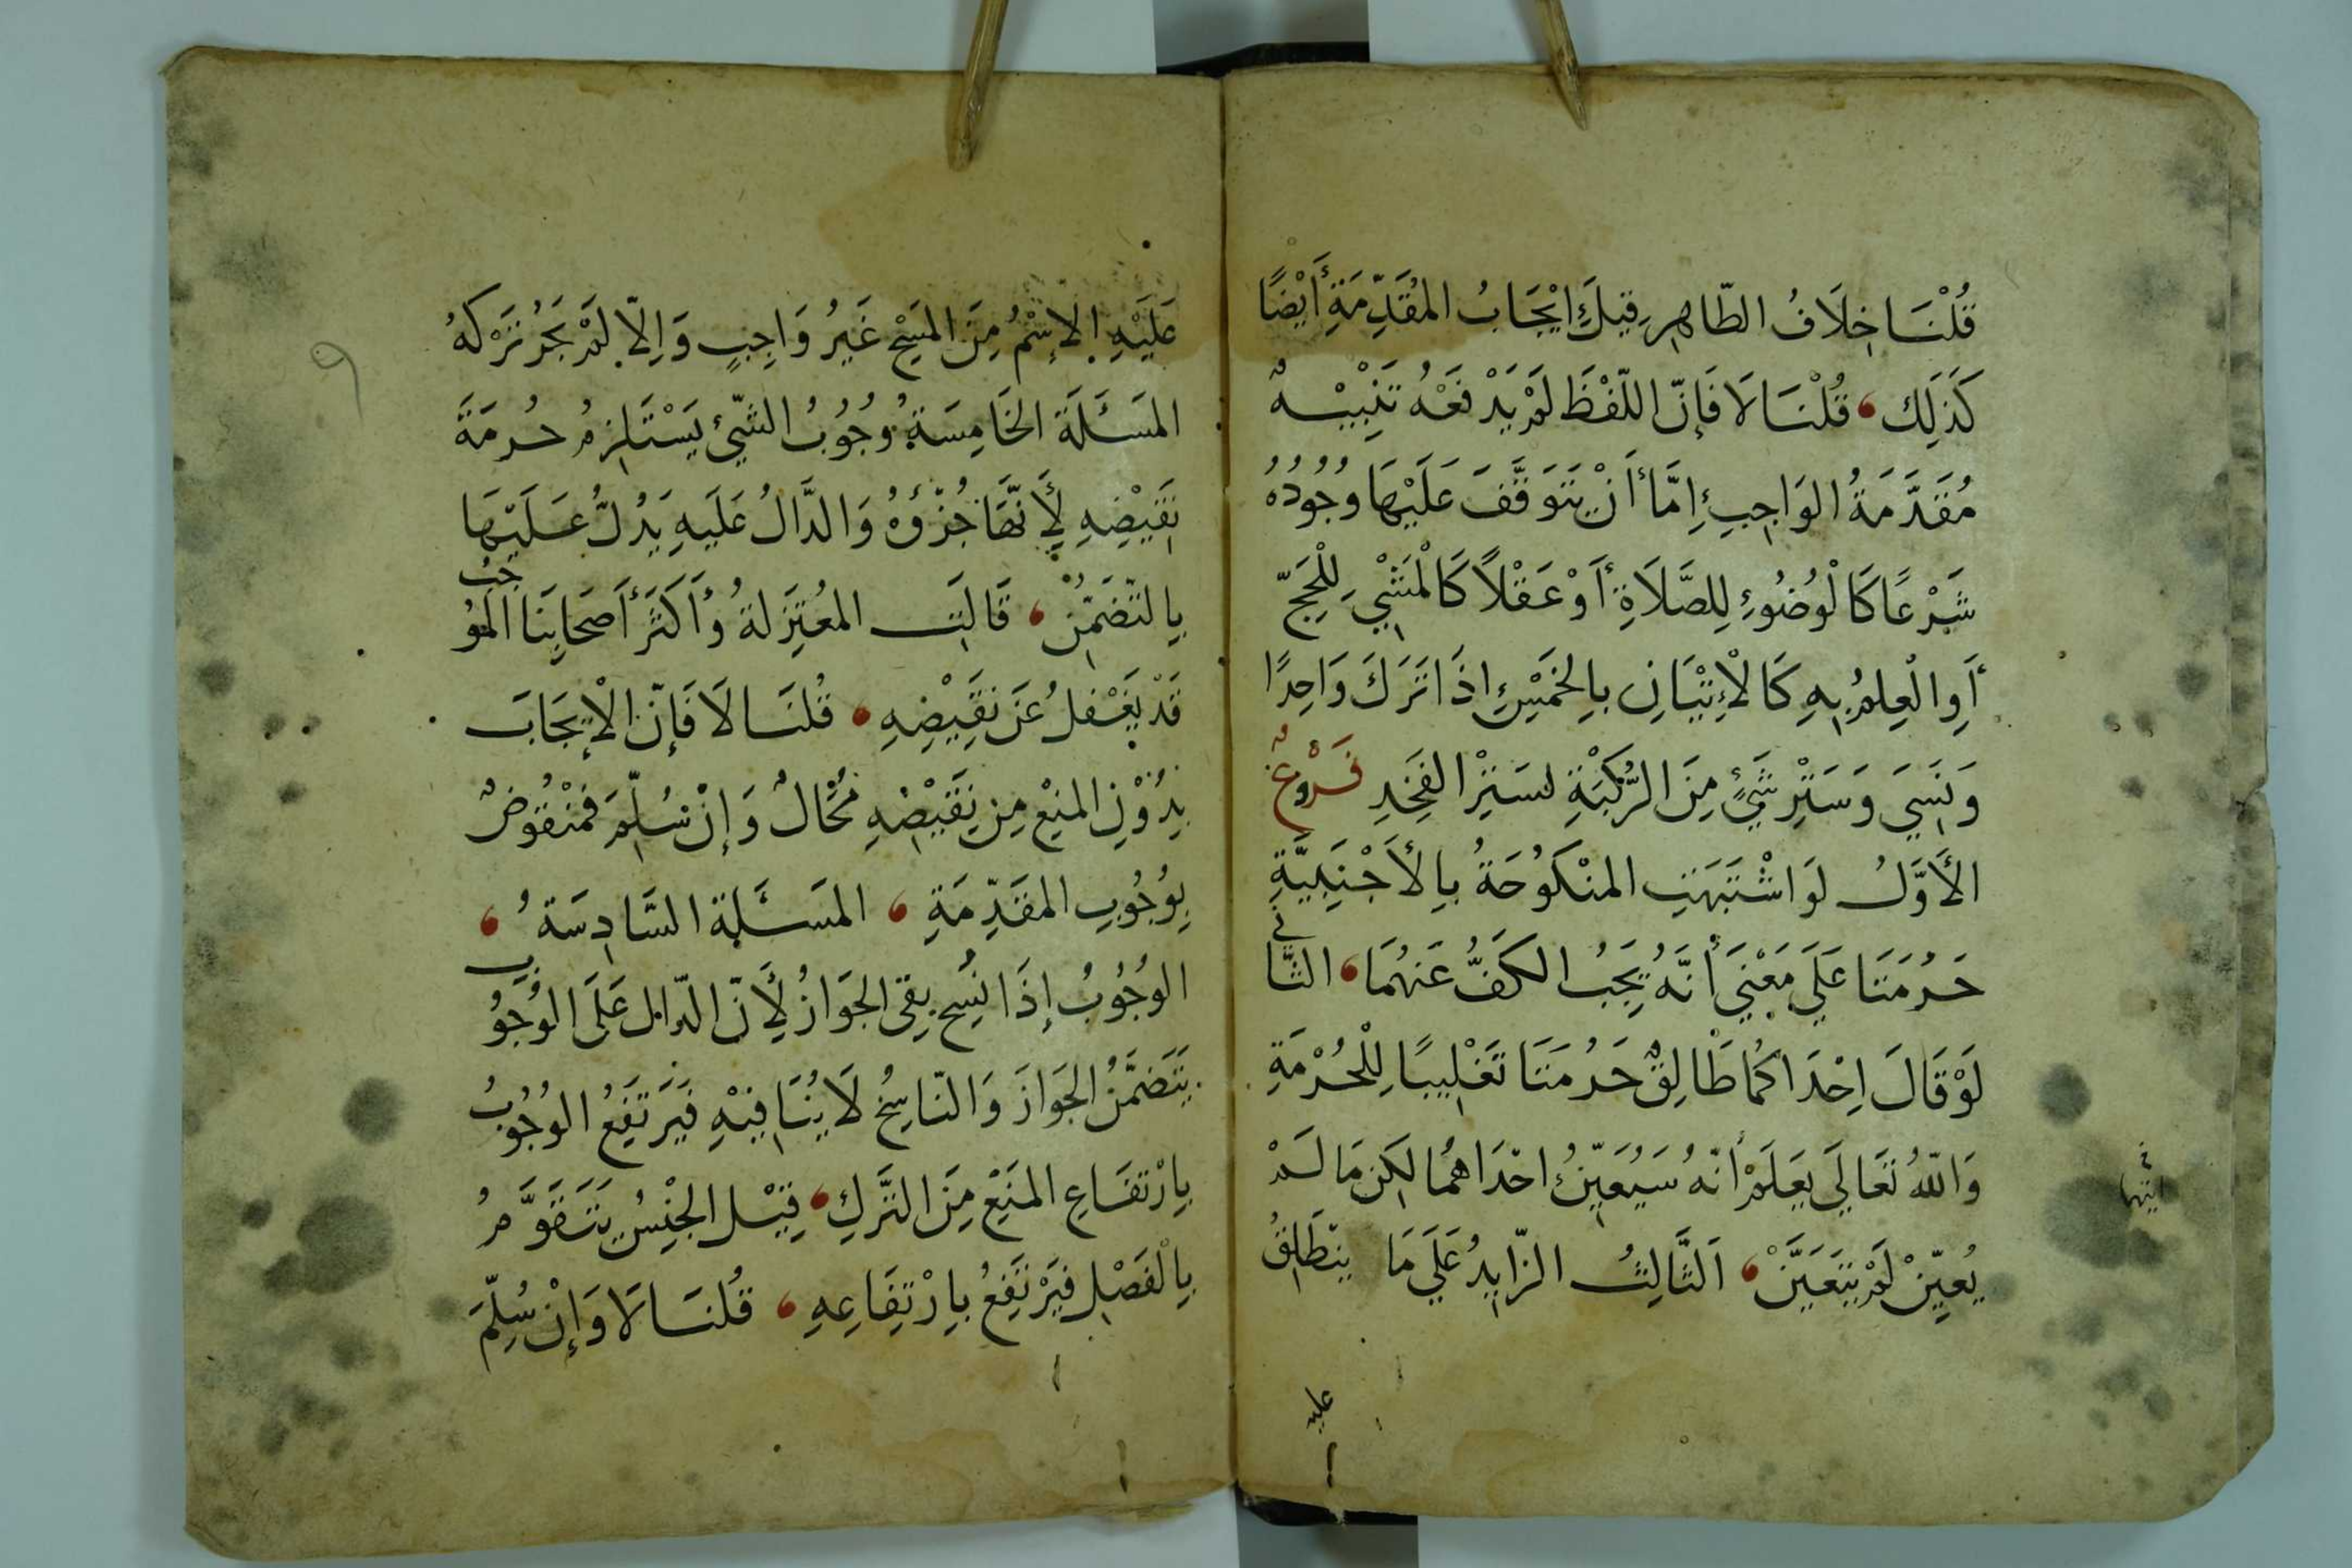 قُلْنَا خِلَافُ الظَّاهِرِ قِيلَ إِيْجَابُ المُقَدِّمَةِ أَيْضًا
كَذَلِكَ قُلْنَا لَا فَإِنَّ اللَّفْظَ لَمْ يَدْفَعْهُ تَنْبِيْهٌ
مُقَدَّمَةُ الوَاجِبِ إِمَّا أَنْ يَتَوَقَّفَ عَلَيْهَا وُجُودُهُ
شَرْعًا كَالْوُضُوءِ لِلصَّلَاةِ أَوْ عَقْلًا كَالْمَشْيِ لِلْحَجِّ
أَوِ الْعِلْمُ بِهِ كَالْإِتْيَانِ بِالخَمْسِ إِذَا تَرَكَ وَاحِدًا
وَنَسِيَ وَسَتْرِ شَيْءٍ مِنَ الرُّكْبَةِ لسَتْرِ الفَخِذِ فُرُوعٌ
الأَوَّلُ لَوِ اشْتَبَهَتِ المَنْكُوحَةُ بِالأَجْنَبِيَّةِ
حَرُمَتَا عَلَى مَعْنَى أَنَّهُ يَجِبُ الكَفُّ عَنْهُمَا الثَّانِي
لَوْ قَالَ إِحْدَاكُمَا طَالِقٌ حَرُمَتَا تَغْلِيبًا لِلْحُرْمَةِ
وَاللّٰهُ تَعَالَى يَعْلَمُ أَنَّهُ سَيُعَيِّنُ احْدَاهُمَا لكِنْ مَا لَمْ
يُعَيِّنْ لَمْ يَتَعَيَّنْ الثَّالِثُ الزَّايِدُ عَلَى مَا يَنْطَلِقُ
عليه
عَلَيْهِ الإِسْمُ مِنَ المَسْحِ غَيْرُ وَاجِبٍ وَإِلَّا لَمْ يَجُزْ تَرْكُهُ
المَسْئَلَةُ الخَامِسَةُ وُجُوبُ الشَّيْءِ يَسْتَلْزِمُ حُرْمَةَ
نَقِيْضِهِ لِأَنَّهَا جُزْؤُهُ وَالدَّالُ عَلَيْهِ يَدُلُّ عَلَيْهَا
بِالتَّضَمُّنِ قَالَتِ المُعْتَزِلَةُ وَأَكْثَرُ أَصْحَابِنَا المُوجِبُ
قَدْ يَغْفلُ عَنْ نَقِيْضِهِ قُلْنَا لَا فَإِنَّ الإِيْجَابَ
بِدُوْنِ المَنْعِ مِنْ نَقِيْضِهِ مُحَالٌ وَإِنْ سُلِّمَ فَمَنْقُوضٌ
بِوُجُوبِ المُقَدِّمَةِ المَسْئَلَةُ السَّادِسَةُ
الوُجُوبُ إِذَا نُسِخَ بَقِيَ الجَوَازُ لِأَنَّ الدَّالَّ عَلَى الوُجُوبِ
يَتَضَمَّنُ الجَوَازَ وَالنَّاسِخُ لَا يُنَافِيْهِ فَيَرْتَفِعُ الوُجُوبُ
بِارْتِفَاعِ المَنْعِ مِنَ التَّرْكِ قِيْلَ الجِنْسُ يَتَقَوَّمُ
بِالْفَصْلِ فَيَرْتَفِعُ بِارْتِفَاعِهِ قُلْنَا لَا وَإِنْ سُلِّمَ
٩